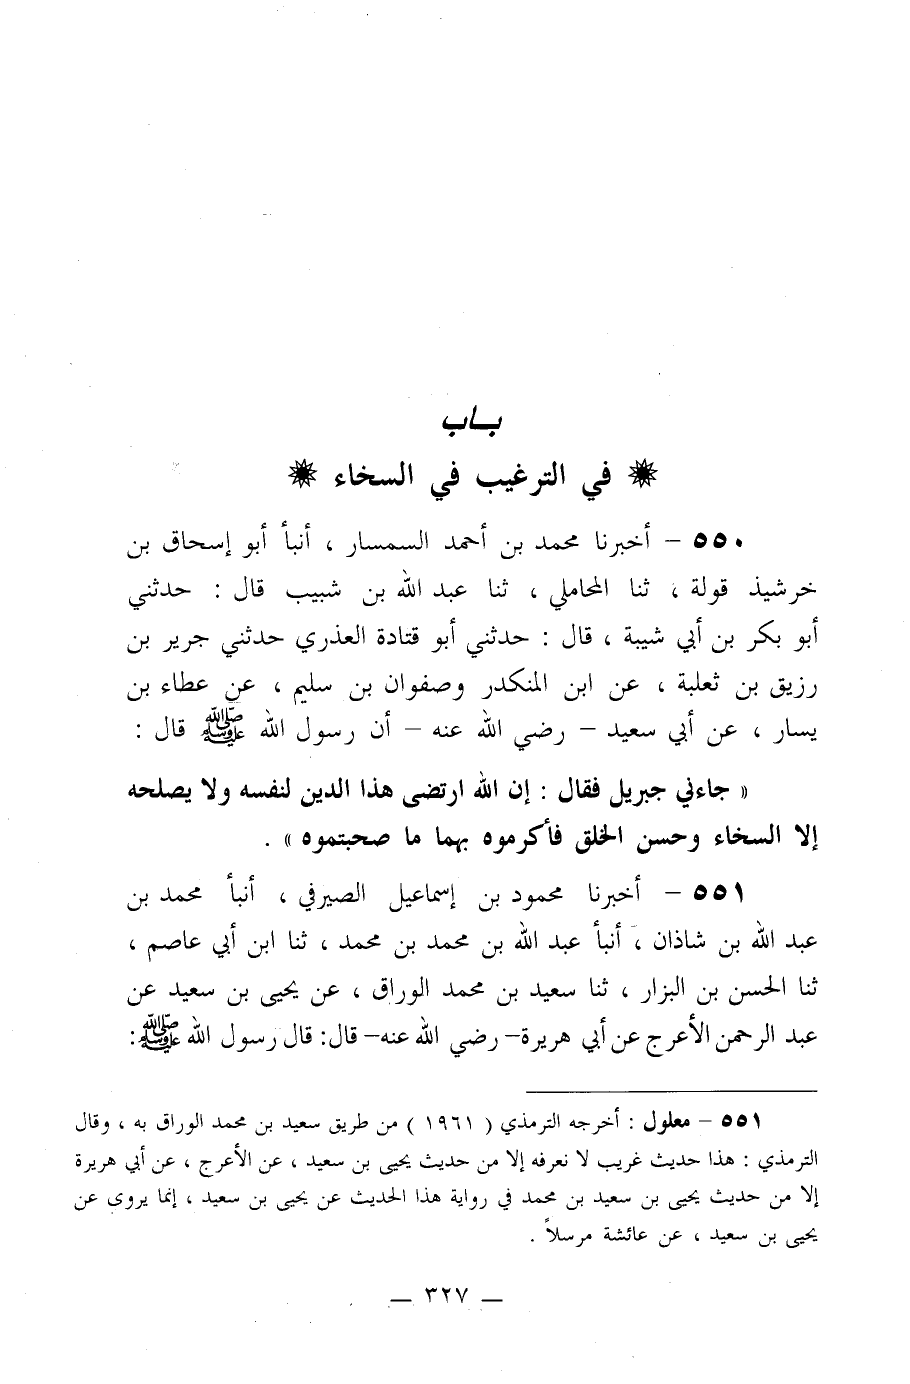 بـاب
في الترغيب في السخاء
٥٥٠ – أخبرنا محمد بن أحمد السمسار ، أنبأ أبو إسحاق بن
خرشيذ قولة ، ثنا المحاملي ، ثنا عبد الله بن شبيب قال : حدثني
أبو بكر بن أبي شيبة ، قال : حدثني أبو قتادة العذري حدثني جرير بن
رزيق بن ثعلبة ، عن ابن المنكدر وصفوان بن سليم ، عن عطاء بن
يسار ، عن أبي سعيد – رضي الله عنه – أن رسول الله ﷺ قال :
« جاءني جبريل فقال : إن الله ارتضى هذا الدين لنفسه ولا يصلحه
إلا السخاء وحسن الخلق فأكرموه بهما ما صحبتموه » .
٥٥١ – أخبرنا محمود بن إسماعيل الصيرفي ، أنبأ محمد بن
عبد الله بن شاذان ، أنبأ عبد الله بن محمد بن محمد ، ثنا ابن أبي عاصم ،
ثنا الحسن بن البزار ، ثنا سعيد بن محمد الوراق ، عن يحيى بن سعيد عن
عبد الرحمن الأعرج عن أبي هريرة – رضي الله عنه – قال: قال رسول الله ﷺ:
٥٥١ – معلول : أخرجه الترمذي ( ١٩٦١ ) من طريق سعيد بن محمد الوراق به ، وقال
الترمذي : هذا حديث غريب لا نعرفه إلا من حديث يحيى بن سعيد ، عن الأعرج ، عن أبي هريرة
إلا من حديث يحيى بن سعيد بن محمد في رواية هذا الحديث عن يحيى بن سعيد ، إنما يروى عن
يحيى بن سعيد ، عن عائشة مرسلاً .
— ٣٢٧ —